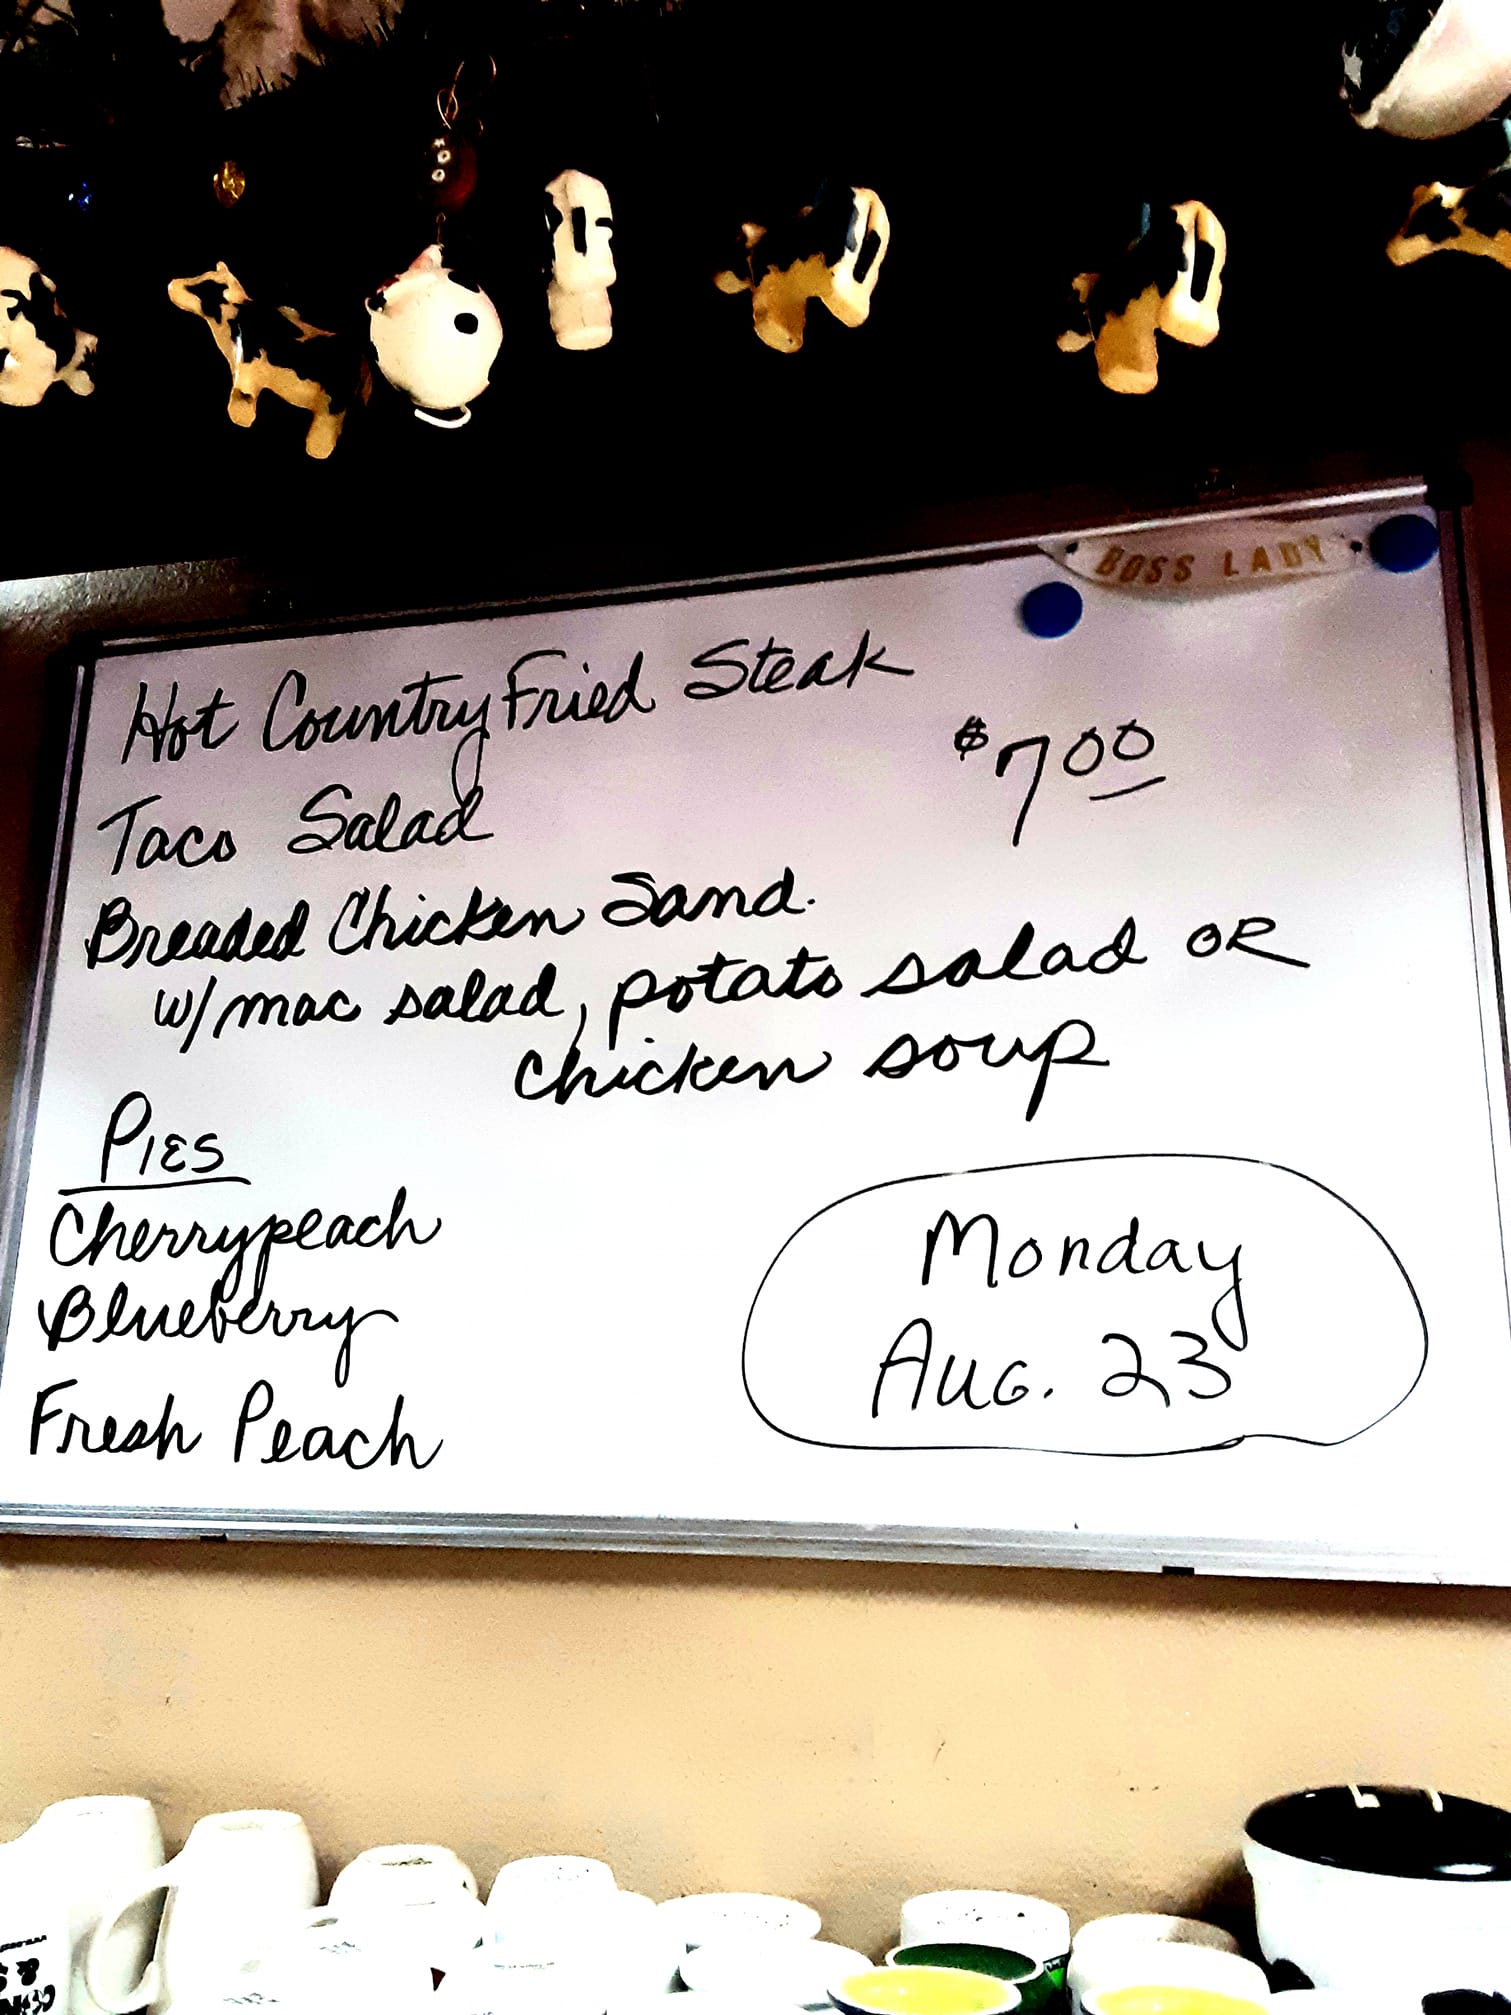 BOSS LADY
Hot Country Fried Steak
$7.00
Taco Salad
Breaded Chicken Sand.
w/ mac salad, potato salad OR
chicken soup
PIES
Cherrypeach
Blueberry
Fresh Peach
Monday
Aug. 23